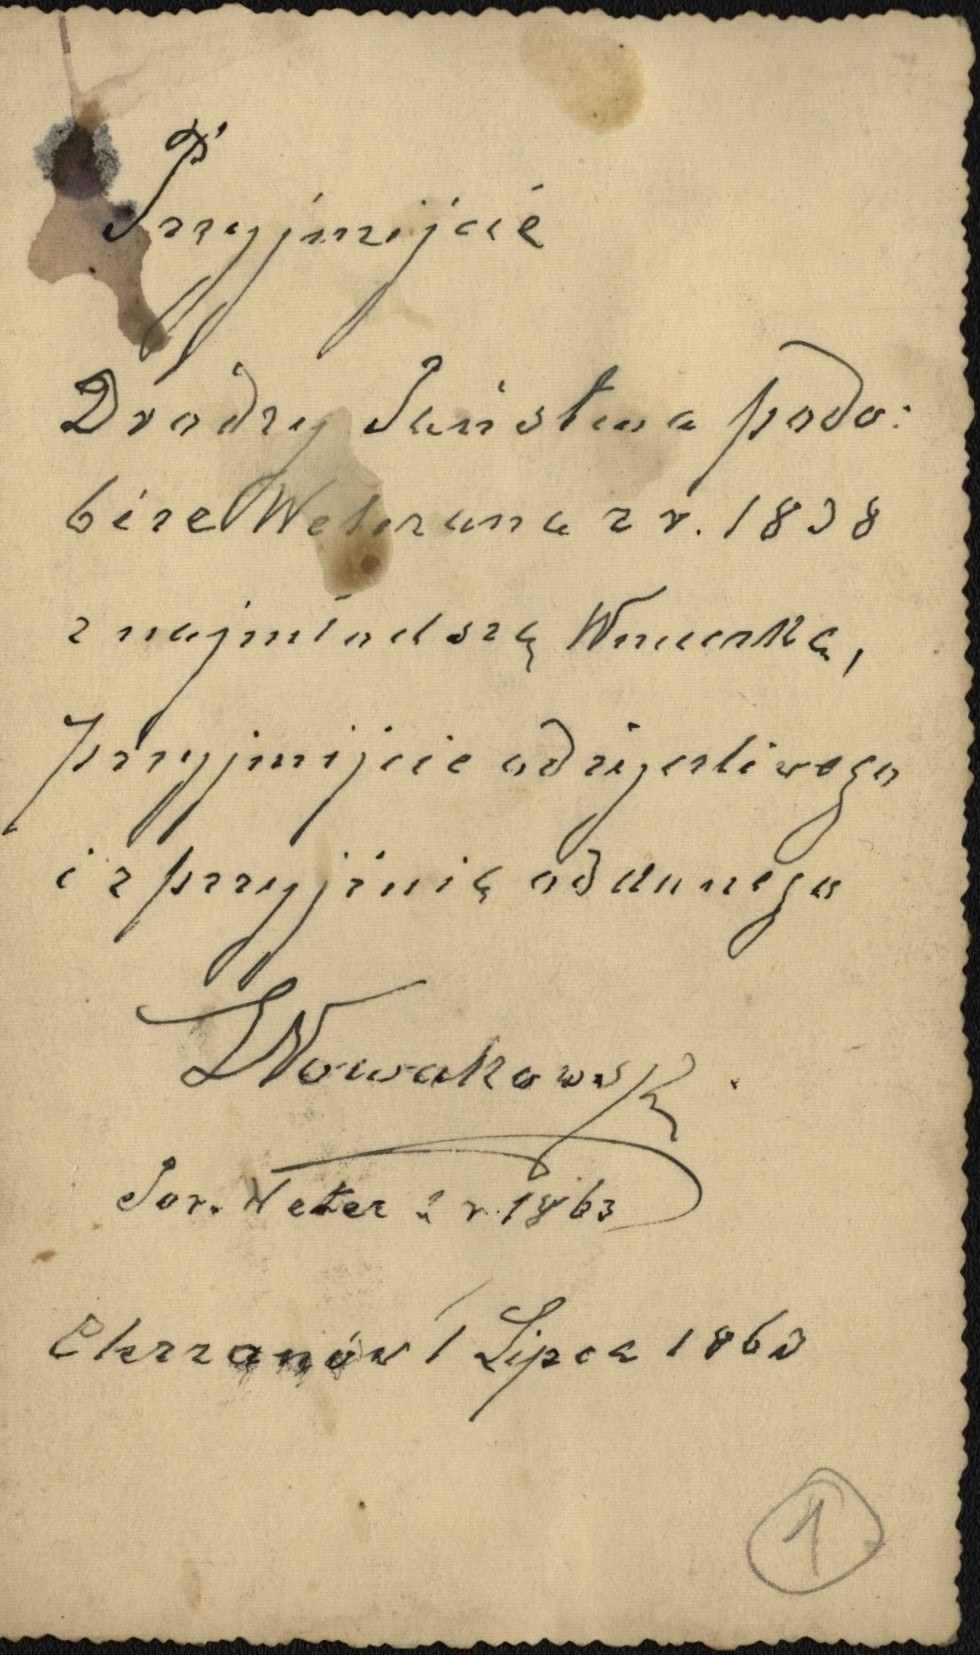 Przyjmijcie
Drodzy Państwa podo:
bizę Weterana z r. 1838
z najmłodszą Wnuczką,
przyjmijcie od życzliwego
i z przyjźnią oddanego
LNowakowski
Por. Weter z r. 1863
Chrzanów 1 Lipca 1863
1